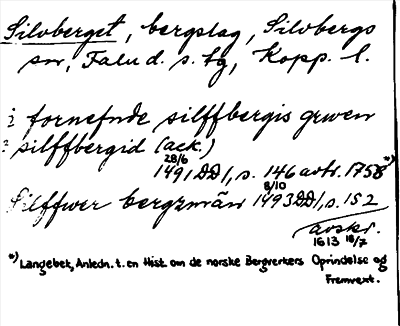 Silvberget, bergslag, Silvbergs
sn, Falu d. s. lg, Kopp. l.
i fornefnde silffbergis grwen
? silffbergid (ack.)
28/6
1491 DD 1, s. 146 avtr. 1758*)
8/10
Silffwer bergzmän 1493 DD 1, s. 152
avskr.
1613 18/7
*) Langebek, Anledn. t. en Hist. om de norske Bergverkers Oprindelse og
Fremvext.